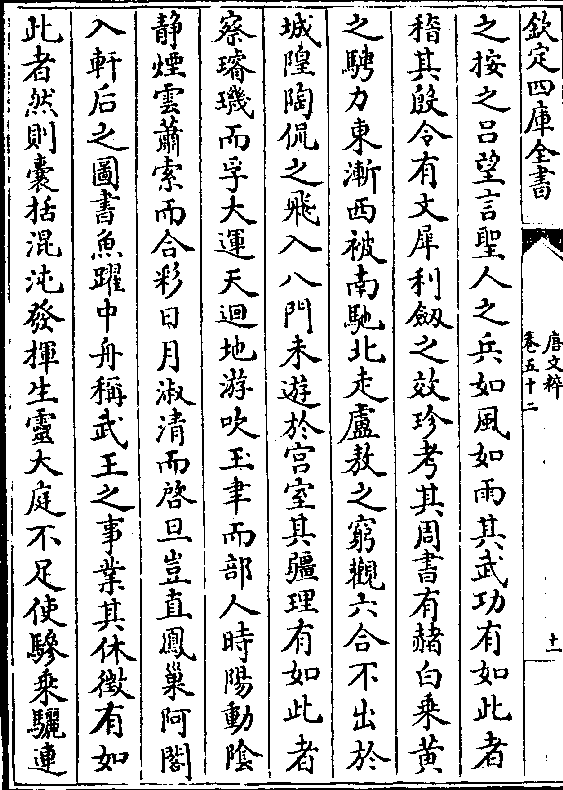 欽定四庫全書
唐文粹
卷五十二
十一
之按之呂望言聖人之兵如風如雨其武功有如此者
稽其殷令有文犀利劒之效珍考其周書有赭白乘黃
之騁力東漸西被南馳北走盧敖之窮觀六合不出於
城隍陶侃之飛入八門未遊於宫室其疆理有如此者
察璿璣而孚大運天迴地游吹玉聿而部人時陽動隂
静煙雲蕭索而合彩日月淑清而啓旦豈直鳳巢阿閣
入軒后之圖書魚躍中舟稱武王之事業其休徴有如
此者然則囊括混沌發揮生靈大庭不足使驂乘驪連